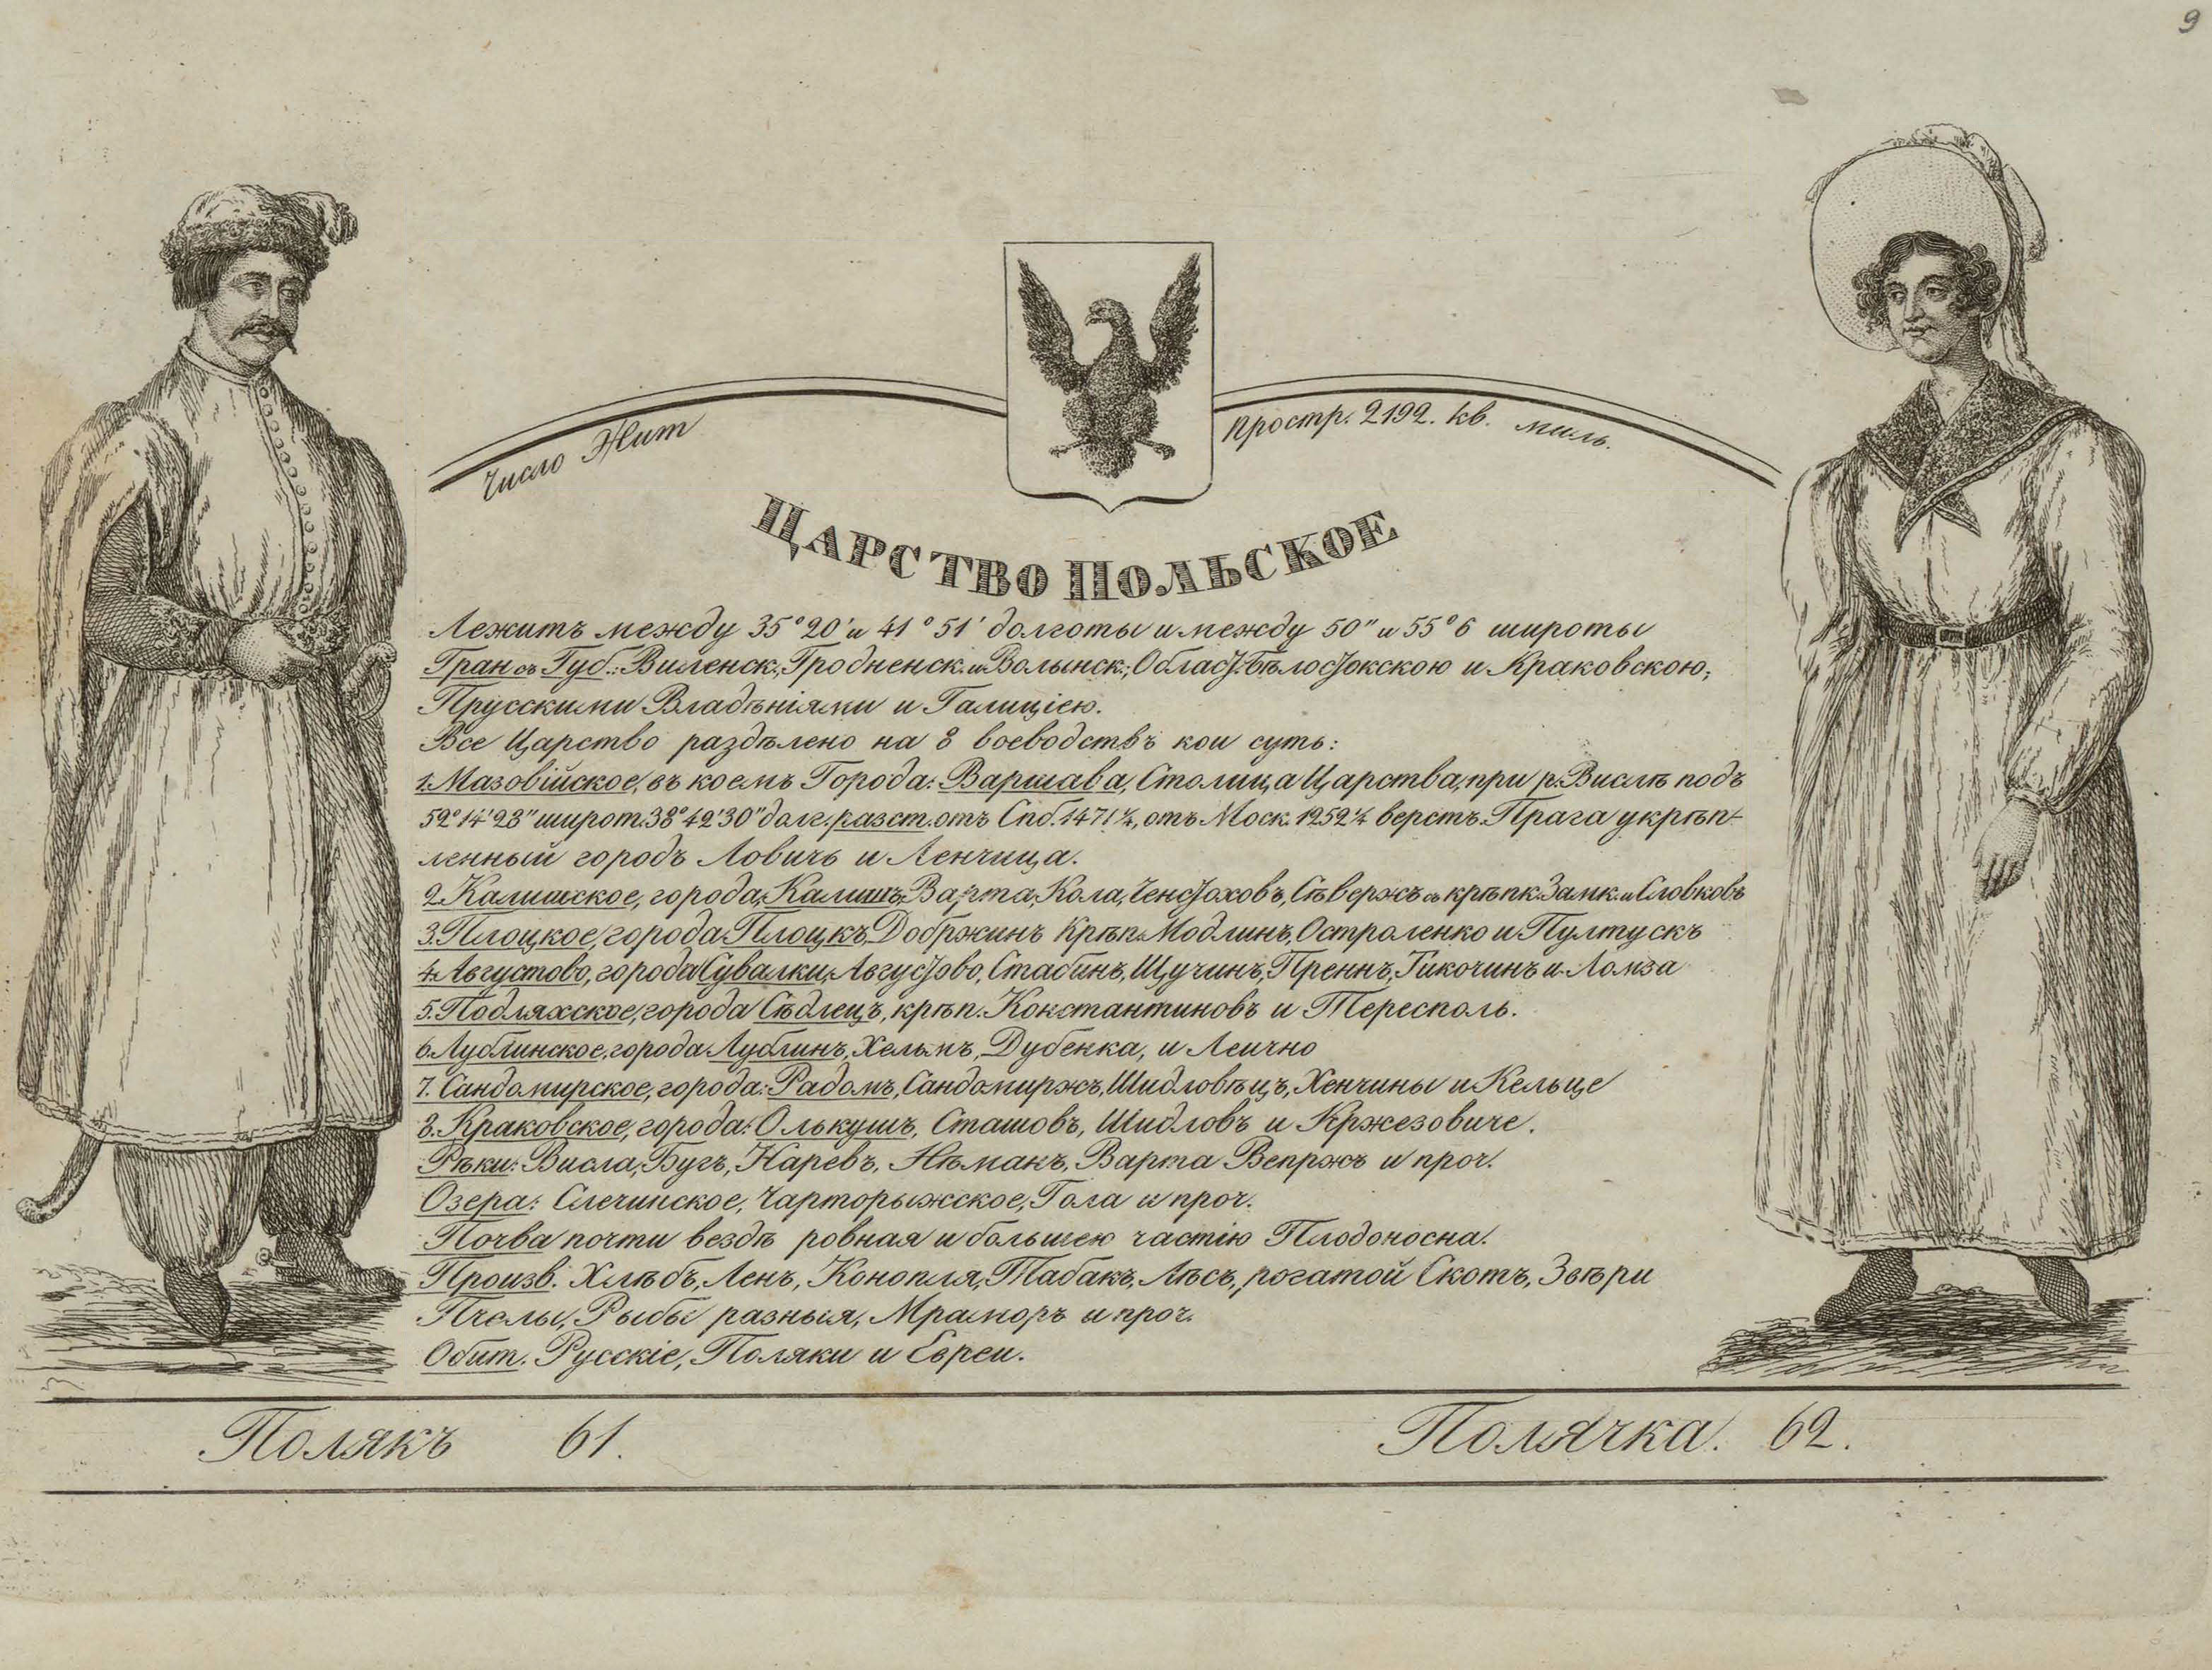 9
Число Жит
простр. 2192. кв. миль.
ЦАРСТВО ПОЛЬСКОЕ
Лежитъ между 35°20' и 41°51' долготы и между 50" и 55°6 широты
Гран съ Губ.: Виленск., Гродненск. и Волынск.; Област. Бѣлостокскою и Краковскою,
Прусскими Владѣніями и Галиціею.
Все Царство раздѣлено на 8 воеводствъ кои суть:
1. Мазовійское, въ коемъ Города: Варшава, Столица Царства, при р. Вислѣ подъ
52°14'28" широт. 38°42'30" долг. разст. отъ Спб. 1471¼, отъ Моск. 1252¼ верстъ. Прага укрѣп-
ленный городъ Ловичь и Ленчица.
2. Калишское, города, Калишъ, Варта, Кола, Ченстоховъ, Сѣвержъ съ крѣпк. Замк. и Словковъ
3. Плоцкое, города Плоцкъ, Добржинъ Крѣп. Модлинъ, Остроленко и Пултускъ
4. Августово, города Сувалки, Августово, Стабинъ, Щучинъ, Преннъ, Тикочинъ и Ломза
5. Подляхское, города Сѣдлецъ, крѣп. Константиновъ и Тересполь.
6. Лублинское, города Лублинъ, Хельмъ, Дубенка, и Леично
7. Сандомирское, города: Радомъ, Сандомиржъ, Шидловѣцъ, Хенчины и Кельце
8. Краковское, города: Олькушъ, Сташовъ, Шидловъ и Кржезовиче.
Рѣки: Висла, Бугъ, Наревъ, Нѣманъ, Варта Вепржъ и проч.
Озера: Слегинское, Чарторыжское, Гола и проч.
Почва почти вездѣ ровная и большею частію Плодоносна.
Произв. Хлѣбъ, Ленъ, Конопля, Табакъ, Лѣсъ, рогатой Скотъ, Звѣри
Пчелы, Рыбы разныя, Мраморъ и проч.
Обит. Русскіе, Поляки и Евреи.
Полякъ 61.
Полячка. 62.